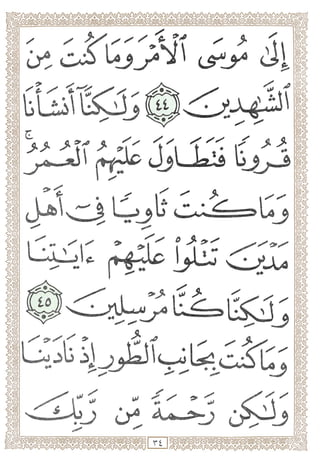 إِلَىٰ مُوسَى ٱلْأَمْرَ وَمَا كُنتَ مِنَ
ٱلشَّٰهِدِينَ ٤٤ وَلَٰكِنَّآ أَنشَأْنَا
قُرُونًا فَتَطَاوَلَ عَلَيْهِمُ ٱلْعُمُرُ ۚ
وَمَا كُنتَ ثَاوِيًا فِىٓ أَهْلِ
مَدْيَنَ تَتْلُوا۟ عَلَيْهِمْ ءَايَٰتِنَا
وَلَٰكِنَّا كُنَّا مُرْسِلِينَ ٤٥
وَمَا كُنتَ بِجَانِبِ ٱلطُّورِ إِذْ نَادَيْنَا
وَلَٰكِن رَّحْمَةً مِّن رَّبِّكَ
٣٤